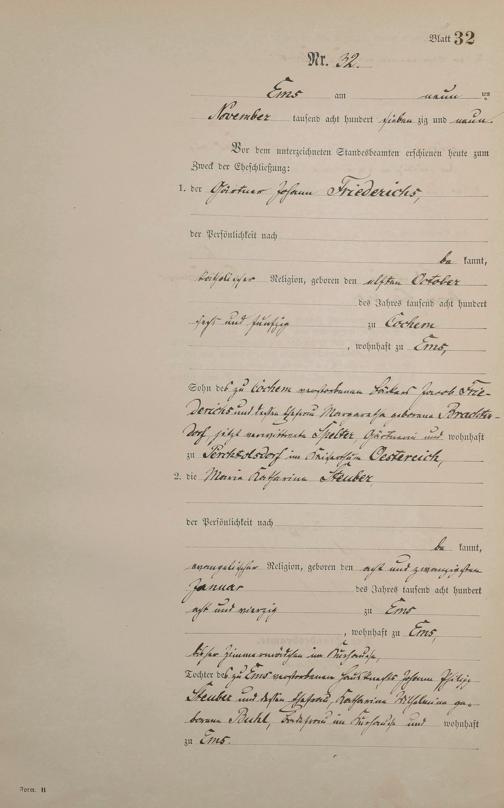 Blatt 32
Nr. 32.
Ems am neun ten
November tausend acht hundert siebenzig und neun.
Vor dem unterzeichneten Standesbeamten erschienen heute zum
Zweck der Eheschließung:
1. der Gärtner Johann Friederichs,
der Persönlichkeit nach
be kannt,
katholischer Religion, geboren den elften October
des Jahres tausend acht hundert
sechs und fünfzig zu Cochem
, wohnhaft zu Ems,
Sohn des zu Cochem verstorbenen Bäckers Jacob Frie-
derichs und dessen Ehefrau Margaretha geborene Brachten-
dorf jetzt verwittwete Spelter, Gärtnerin und wohnhaft
zu Perchtolsdorf im Kaiserthum Oestereich,
2. die Maria Katharina Steuber
der Persönlichkeit nach
be kannt,
evangelischer Religion, geboren den acht und zwanzigsten
Januar des Jahres tausend acht hundert
acht und vierzig zu Ems
, wohnhaft zu Ems,
bisher Zimmermädchen im Kurhause,
Tochter des zu Ems verstorbenen Johann Philipp
Steuber und dessen Ehefrau, Katharina Wilhelmina ge-
borene Buhl, Badefrau im Kurhause und wohnhaft
zu Ems.
Form. B